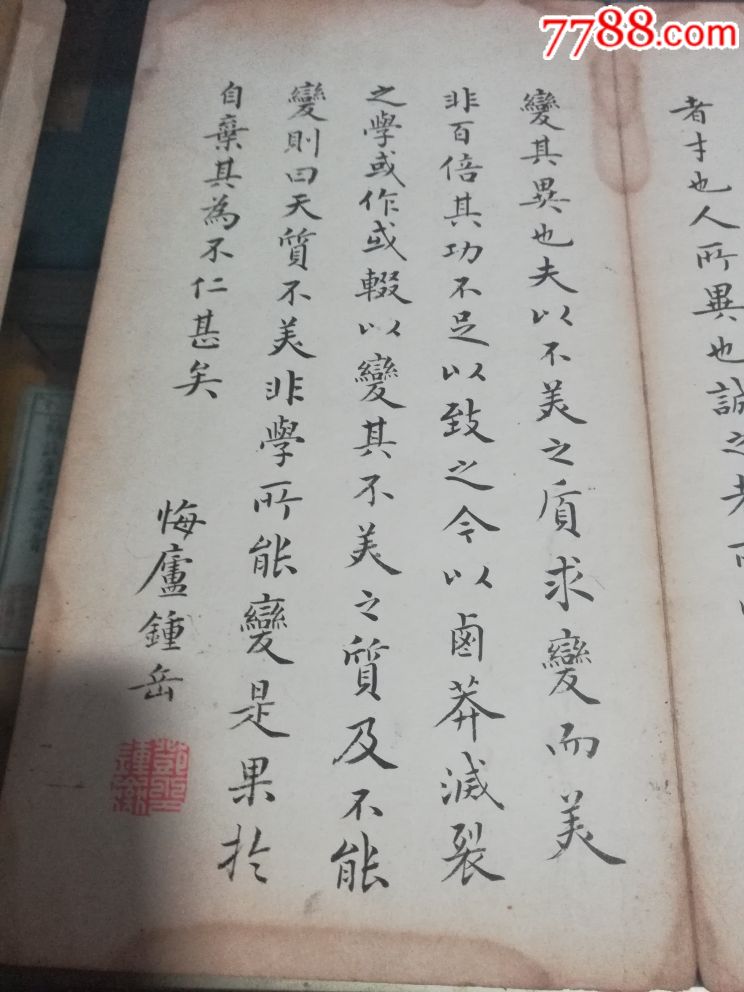 7788.com
者才也人所異也誠之者所以
變其異也夫以不美之质求變而美
非百倍其功不足以致之今以鹵莽滅裂
之學或作或輟以變其不美之質及不能
變則曰天質不美非學所能變是果於
自棄其為不仁甚矣
悔廬鍾岳